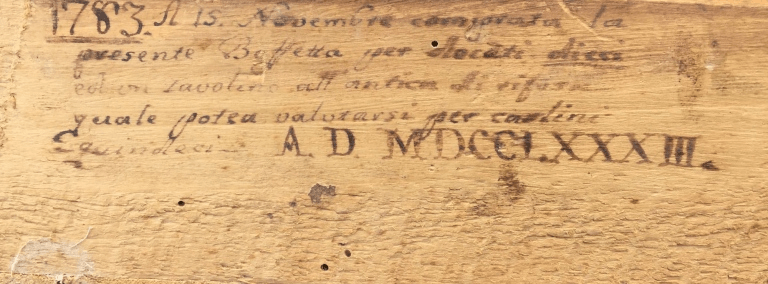 1783. A 15. Novembre comprata la
presente Boffetta per docati dieci
ed un tavolino all'antica di rifusa
quale potea valutarsi per carlini
Equindeci A. D. MDCCLXXXIII.